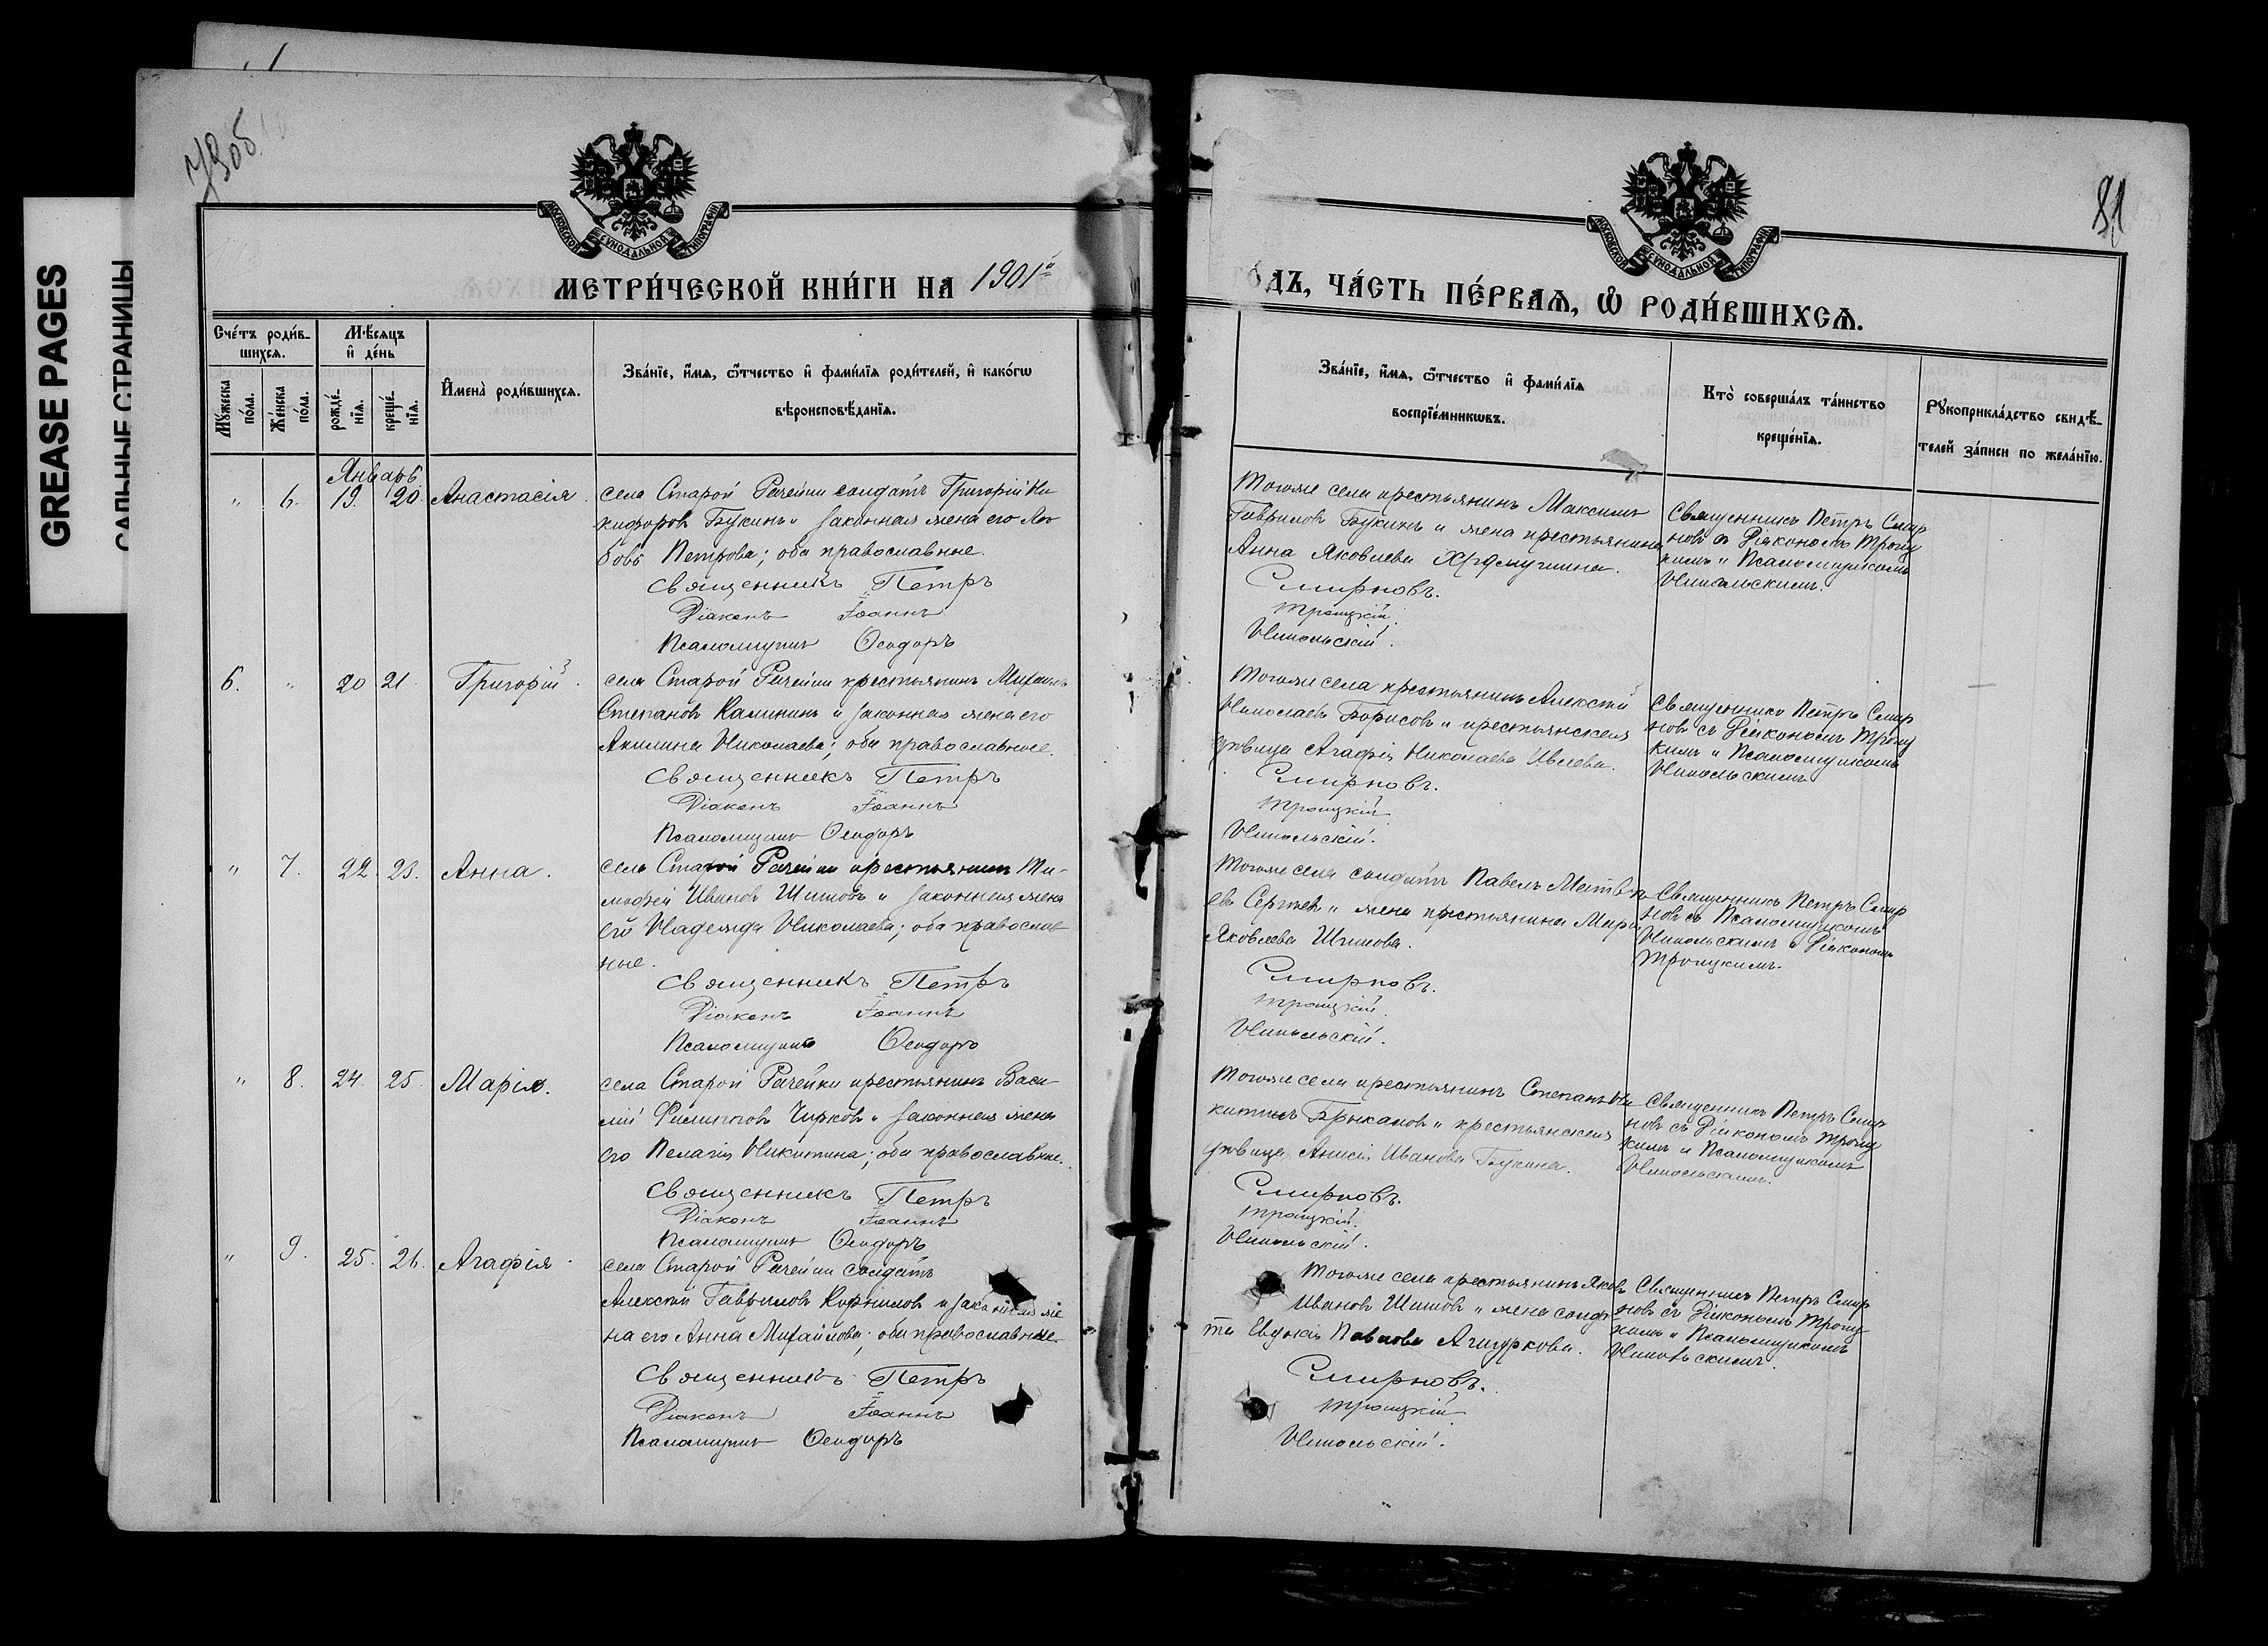 GREASE PAGES
САЛЬНЫЕ СТРАНИЦЫ
81
МОСКОВСКОЙ СУНОДАЛЬНОЙ ТИПОГРАФІИ
МОСКОВСКОЙ СУНОДАЛЬНОЙ ТИПОГРАФІИ
МЕТРИ́ЧЕСКОЙ КНИ́ГИ НА 1901й
ОДЪ, ЧА́СТЬ ПЕ́РВАѦ, Ѡ РОДИ́ВШИХСѦ.
Сче́тъ роди́в-
шихсѧ.
Мѣ́сѧцъ
и҆ де́нь
Мꙋ́жеска
по́ла.
Же́нска
по́ла.
рожде́-
нїѧ.
креще́-
нїѧ.
И҆мена̀ роди́вшихсѧ.
Зва́нїе, и҆́мѧ, ѻ҆́тчество и҆ фами́лїѧ роди́телей, и҆ како́гѡ
вѣроисповѣ́данїѧ.
Зва́нїе, и҆́мѧ, ѻ҆́тчество и҆ фами́лїѧ
воспрїе́мникѡвъ.
Кто̀ соверша́лъ та́инство
креще́нїѧ.
Рꙋкоприкла́дство свидѣ́-
телей за́писи по жела́нїю.
Январь
" 6. 19. 20. Анастасія.
села Старой Рачейки солдатъ Григорій Ни-
кифоровъ Букинъ и законная жена его Лю
бовь Петрова; оба православные.
Священникъ Петръ
Діаконъ Іоаннъ
Псаломщикъ Ѳеодоръ
Тогоже села крестьянинъ Максимъ
Гавриловъ Букинъ и жена крестьянина
Анна Яковлева
Смирновъ.
Троицкій.
Никольскій.
Священникъ Петръ Смир
новъ съ Діакономъ Троиц
кимъ и Псаломщикомъ
Никольскимъ.
6. " 20 21. Григорій.
села Старой Рачейки крестьянинъ Михаилъ
Степановъ Калининъ и законная жена его
Акилина Николаева; оба православные.
Священникъ Петръ
Діаконъ Іоаннъ
Псаломщикъ Ѳеодоръ
Тогоже села крестьянинъ Алексѣй
Николаевъ Борисовъ и крестьянская
вдовица Агафія Николаева Ивлева.
Смирновъ.
Троицкій.
Никольскій.
Священникъ Петръ Смир
новъ съ Діакономъ Троиц
кимъ и Псаломщикомъ
Никольскимъ
" 7. 22. 23. Анна.
села Старой Рачейки крестьянинъ Ти-
мофей Ивановъ Шишовъ и законная жена
его Надежда Николаева; оба православ
ные.
Священникъ Петръ
Діаконъ Іоаннъ
Псаломщикъ Ѳеодоръ
Тогоже села солдатъ Павелъ Матвѣ-
евъ Сергѣевъ и жена крестьянина Марія
Яковлева Шишова.
Смирновъ.
Троицкій.
Никольскій.
Священникъ Петръ Смир
новъ съ Псаломщикомъ
Никольскимъ и Діакономъ
Троицкимъ.
" 8. 24. 25. Марія.
села Старой Рачейки крестьянинъ Васи
лій Филипповъ Чирковъ и законная жена
его Пелагія Никитина; оба православные.
Священникъ Петръ
Діаконъ Іоаннъ
Псаломщикъ Ѳеодоръ
Тогоже села крестьянинъ Степанъ Ни
китинъ Брыкаловъ и крестьянская
вдовица Анисія Иванова Букина.
Смирновъ.
Троицкій.
Никольскій.
Священникъ Петръ Смир
новъ съ Діакономъ Троиц
кимъ и Псаломщикомъ
Никольскимъ.
" 9. 25. 26. Агафія.
села Старой Рачейки солдатъ
Алексѣй Гавриловъ Корниловъ и законная же
на его Анна Михайлова; оба православные
Священникъ Петръ
Діаконъ Іоаннъ
Псаломщикъ Ѳеодоръ
Тогоже села крестьянинъ Яковъ
Ивановъ Шишовъ и жена солда
та Евдокія Павлова
Смирновъ.
Троицкій.
Никольскій.
Священникъ Петръ Смир
новъ съ Діакономъ Троиц
кимъ и Псаломщикомъ
Никольскимъ.